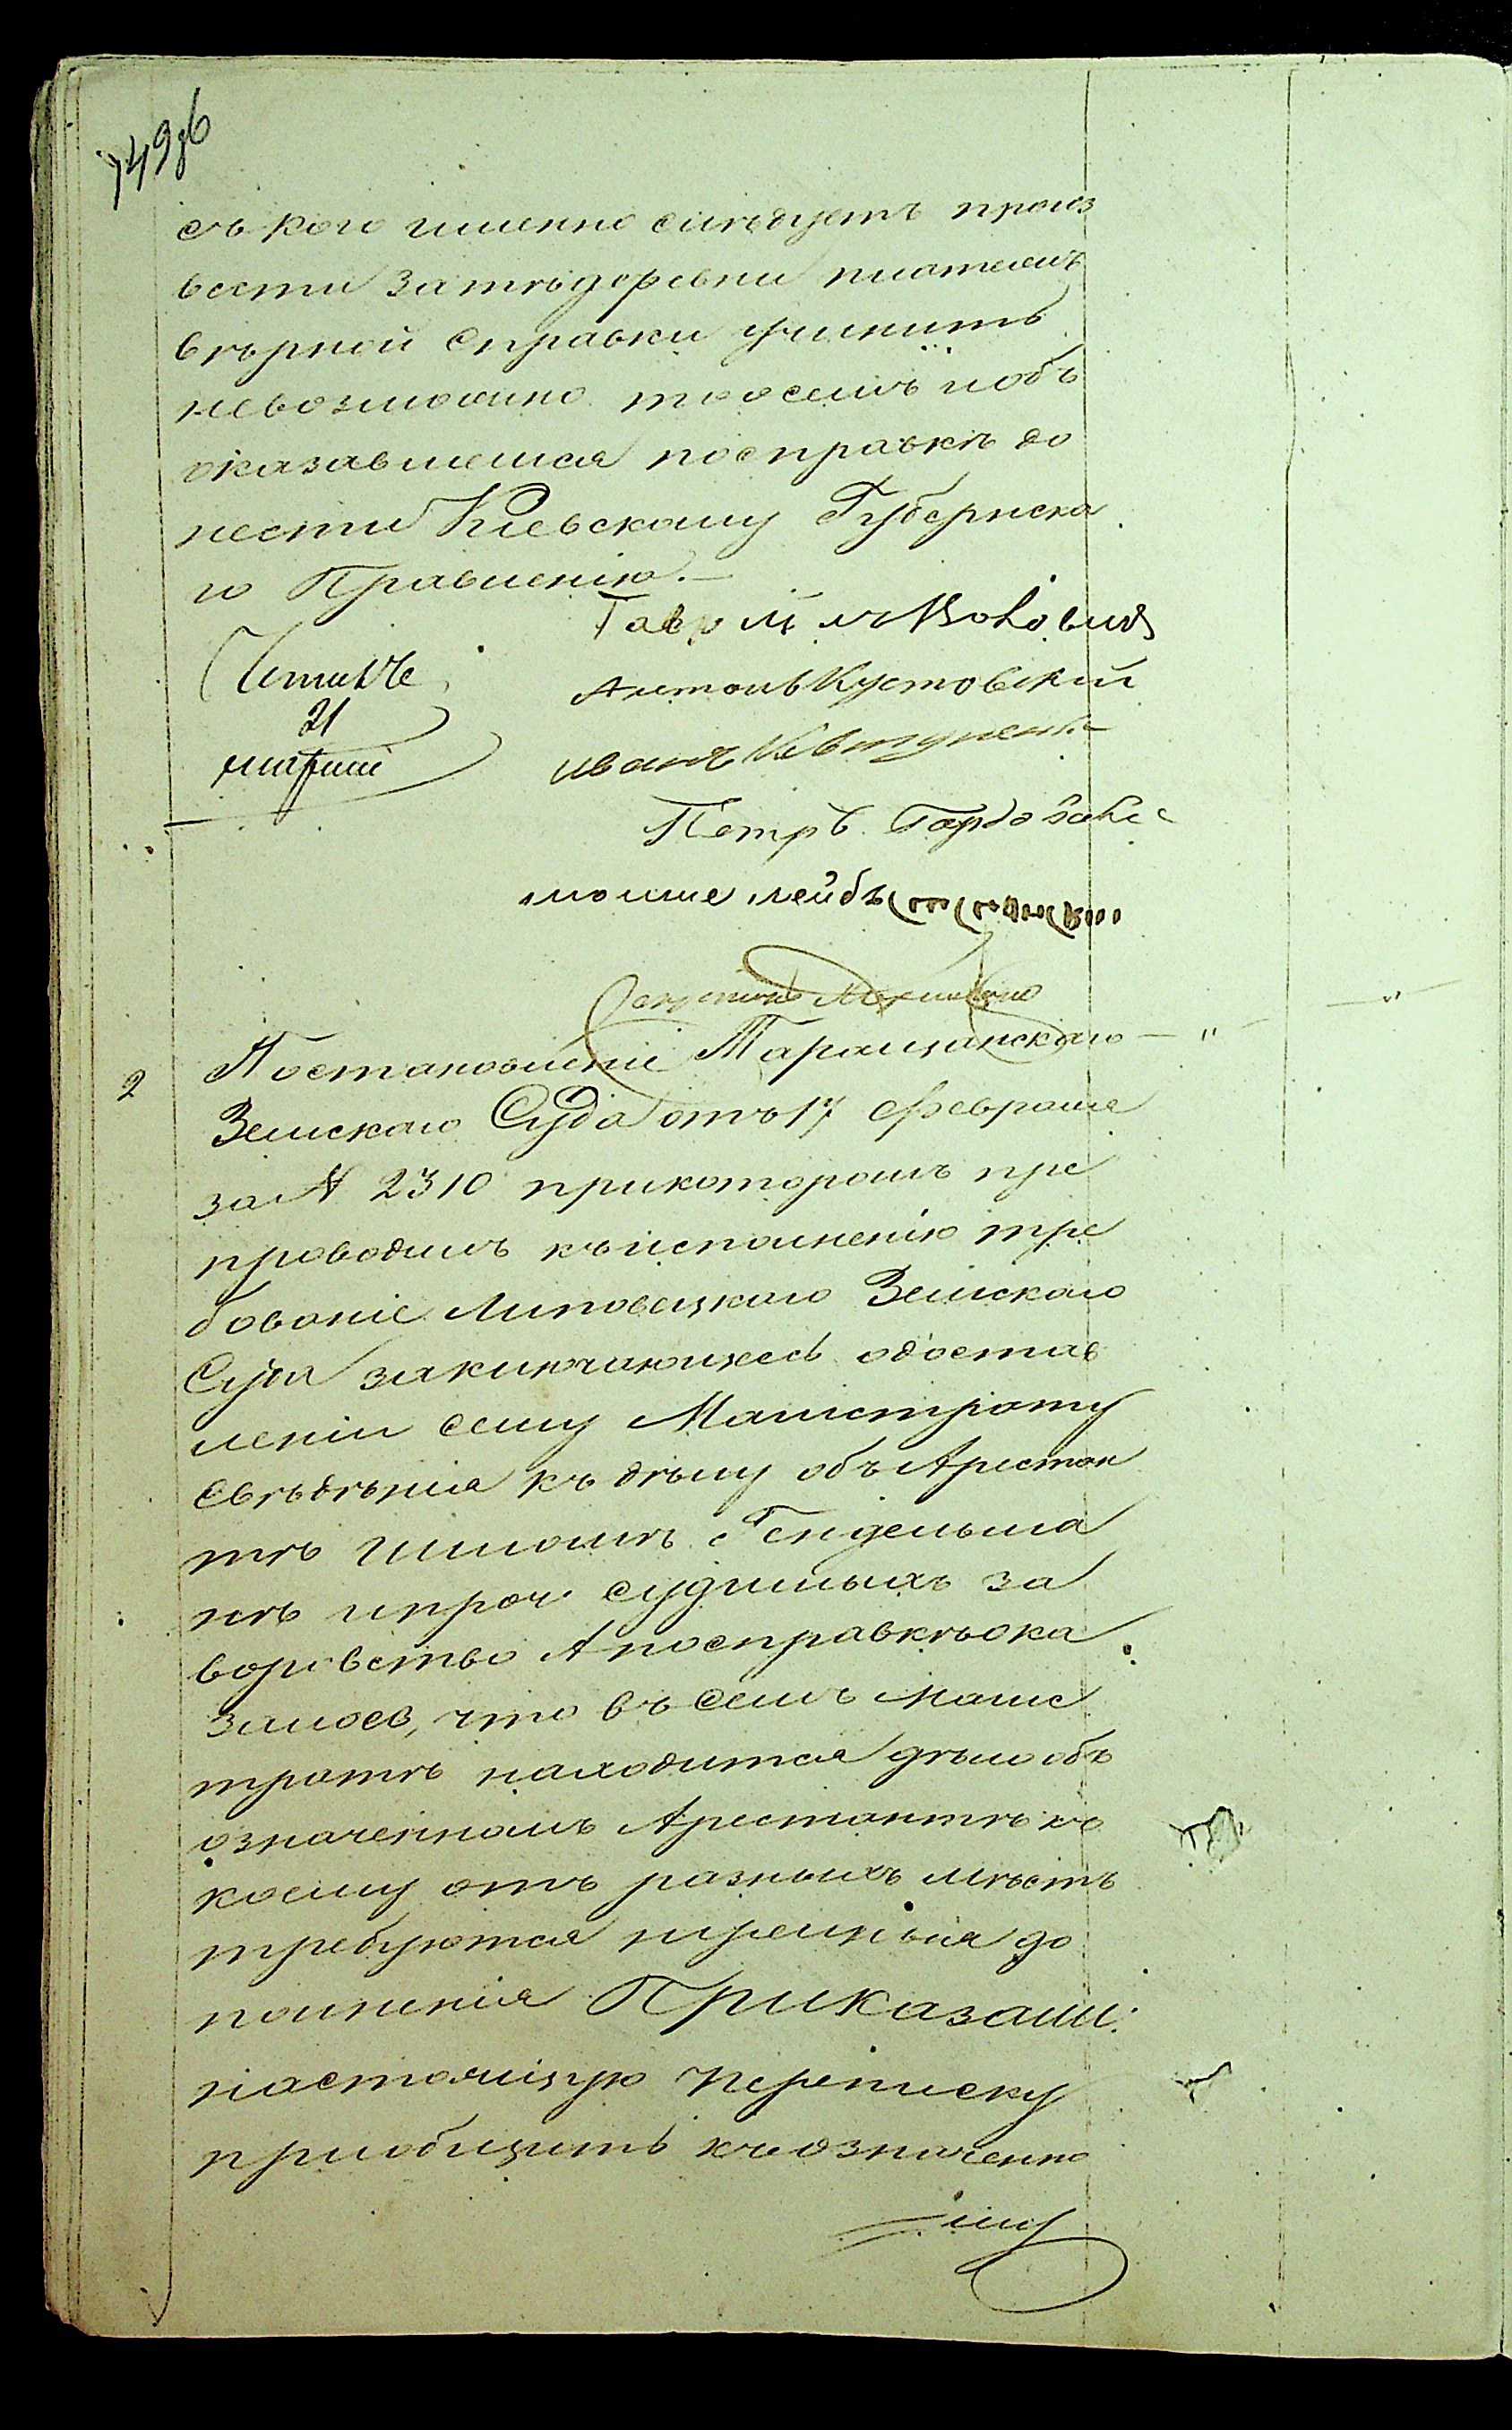 749 об
съ кого именно слѣдуетъ произ
вести затѣ деревни платежъ
вѣрной справки учинить
невозможно то осемъ иобъ
оказавшемся посправкѣ до
нести Кіевскому Губернско
го Правленію.—
Гаврiилъ
Антонъ Кустовскій
21
Иванъ Ковтуненко
марта
Петръ
мошко лейбъ
Секретарь
2
Постановленіе Таращанскаго — "
Земскаго Суда отъ 17 Февраля
за № 2310 прикоторомъ пре
проводилъ къисполненію тре
бованіе Липовецкаго Земскаго
Суда заключающеесь одостав
леніи Сему Магистрату
свѣдѣнія къ дѣлу объ Арестан
тѣ Шліомѣ Гендельма
нѣ ипроч судимыхъ за
воровство А посправкѣ ока
залось, что въ семъ Магис
тратѣ находится дѣло объ
означенномъ Арестантѣ къ
коему отъ разныхъ мѣстъ
требуются нужныя до
полненія Приказали:
настоящую переписку
приобщить къ означенно
му